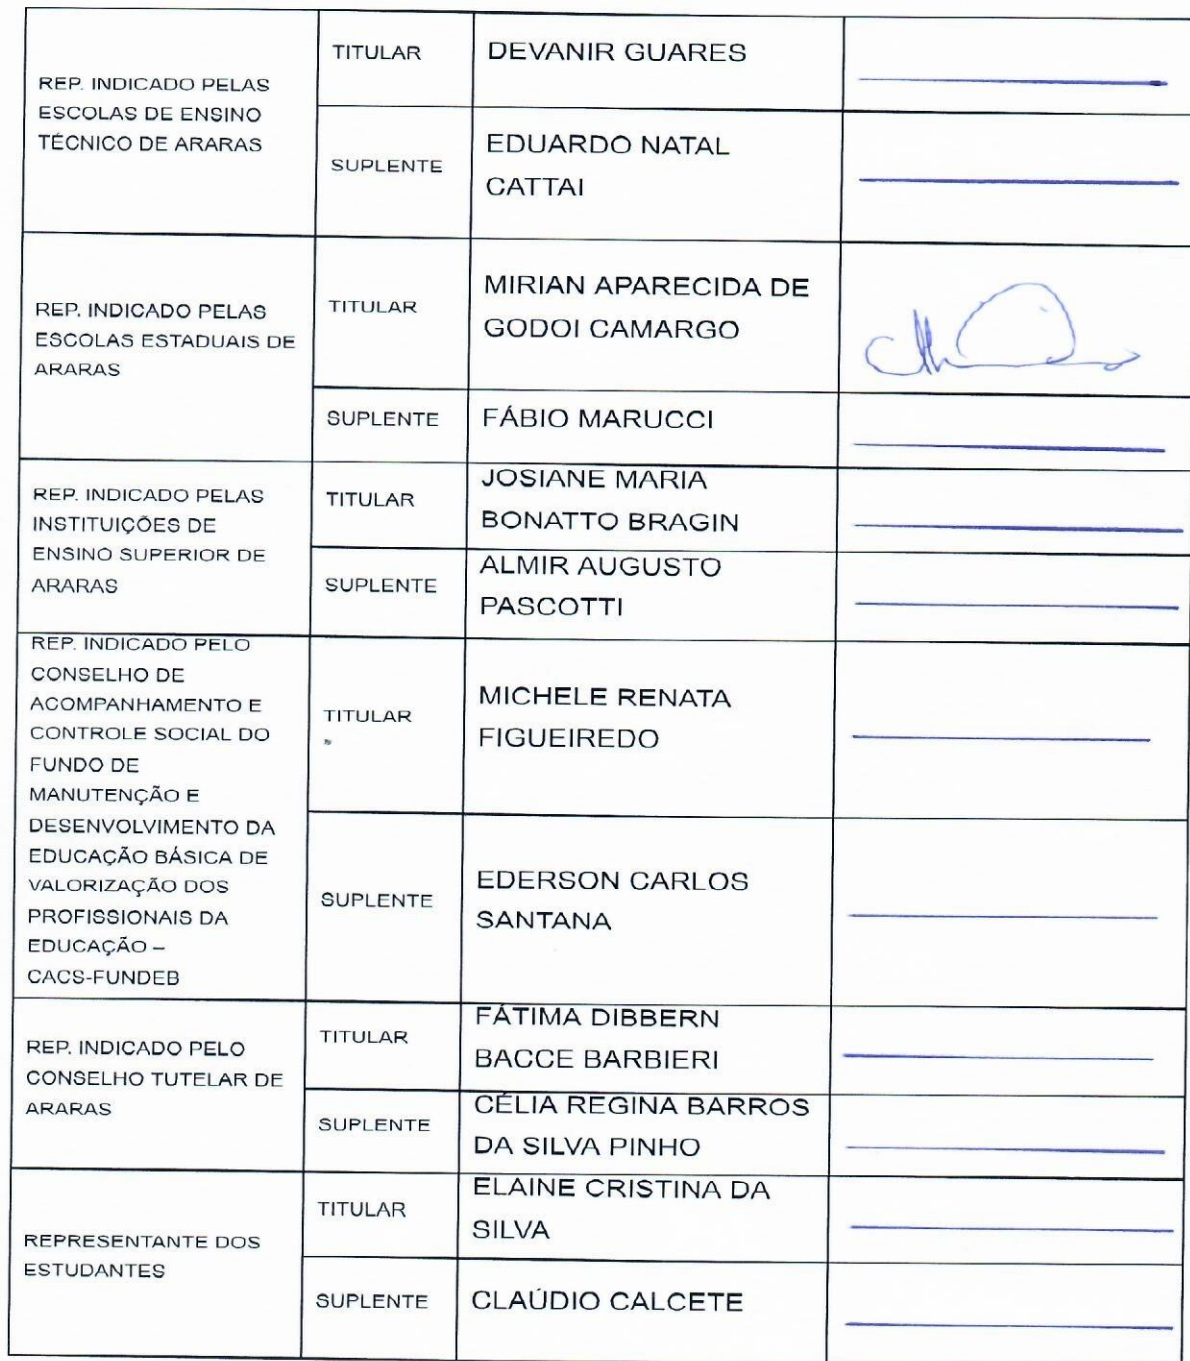 REP. INDICADO PELAS
ESCOLAS DE ENSINO
TÉCNICO DE ARARAS
TITULAR
DEVANIR GUARES
SUPLENTE
EDUARDO NATAL
CATTAI
REP. INDICADO PELAS
ESCOLAS ESTADUAIS DE
ARARAS
TITULAR
MIRIAN APARECIDA DE
GODOI CAMARGO
SUPLENTE
FÁBIO MARUCCI
REP. INDICADO PELAS
INSTITUIÇÕES DE
ENSINO SUPERIOR DE
ARARAS
TITULAR
JOSIANE MARIA
BONATTO BRAGIN
SUPLENTE
ALMIR AUGUSTO
PASCOTTI
REP. INDICADO PELO
CONSELHO DE
ACOMPANHAMENTO E
CONTROLE SOCIAL DO
FUNDO DE
MANUTENÇÃO E
DESENVOLVIMENTO DA
EDUCAÇÃO BÁSICA DE
VALORIZAÇÃO DOS
PROFISSIONAIS DA
EDUCAÇÃO –
CACS-FUNDEB
TITULAR
MICHELE RENATA
FIGUEIREDO
SUPLENTE
EDERSON CARLOS
SANTANA
REP. INDICADO PELO
CONSELHO TUTELAR DE
ARARAS
TITULAR
FÁTIMA DIBBERN
BACCE BARBIERI
SUPLENTE
CÉLIA REGINA BARROS
DA SILVA PINHO
REPRESENTANTE DOS
ESTUDANTES
TITULAR
ELAINE CRISTINA DA
SILVA
SUPLENTE
CLAÚDIO CALCETE